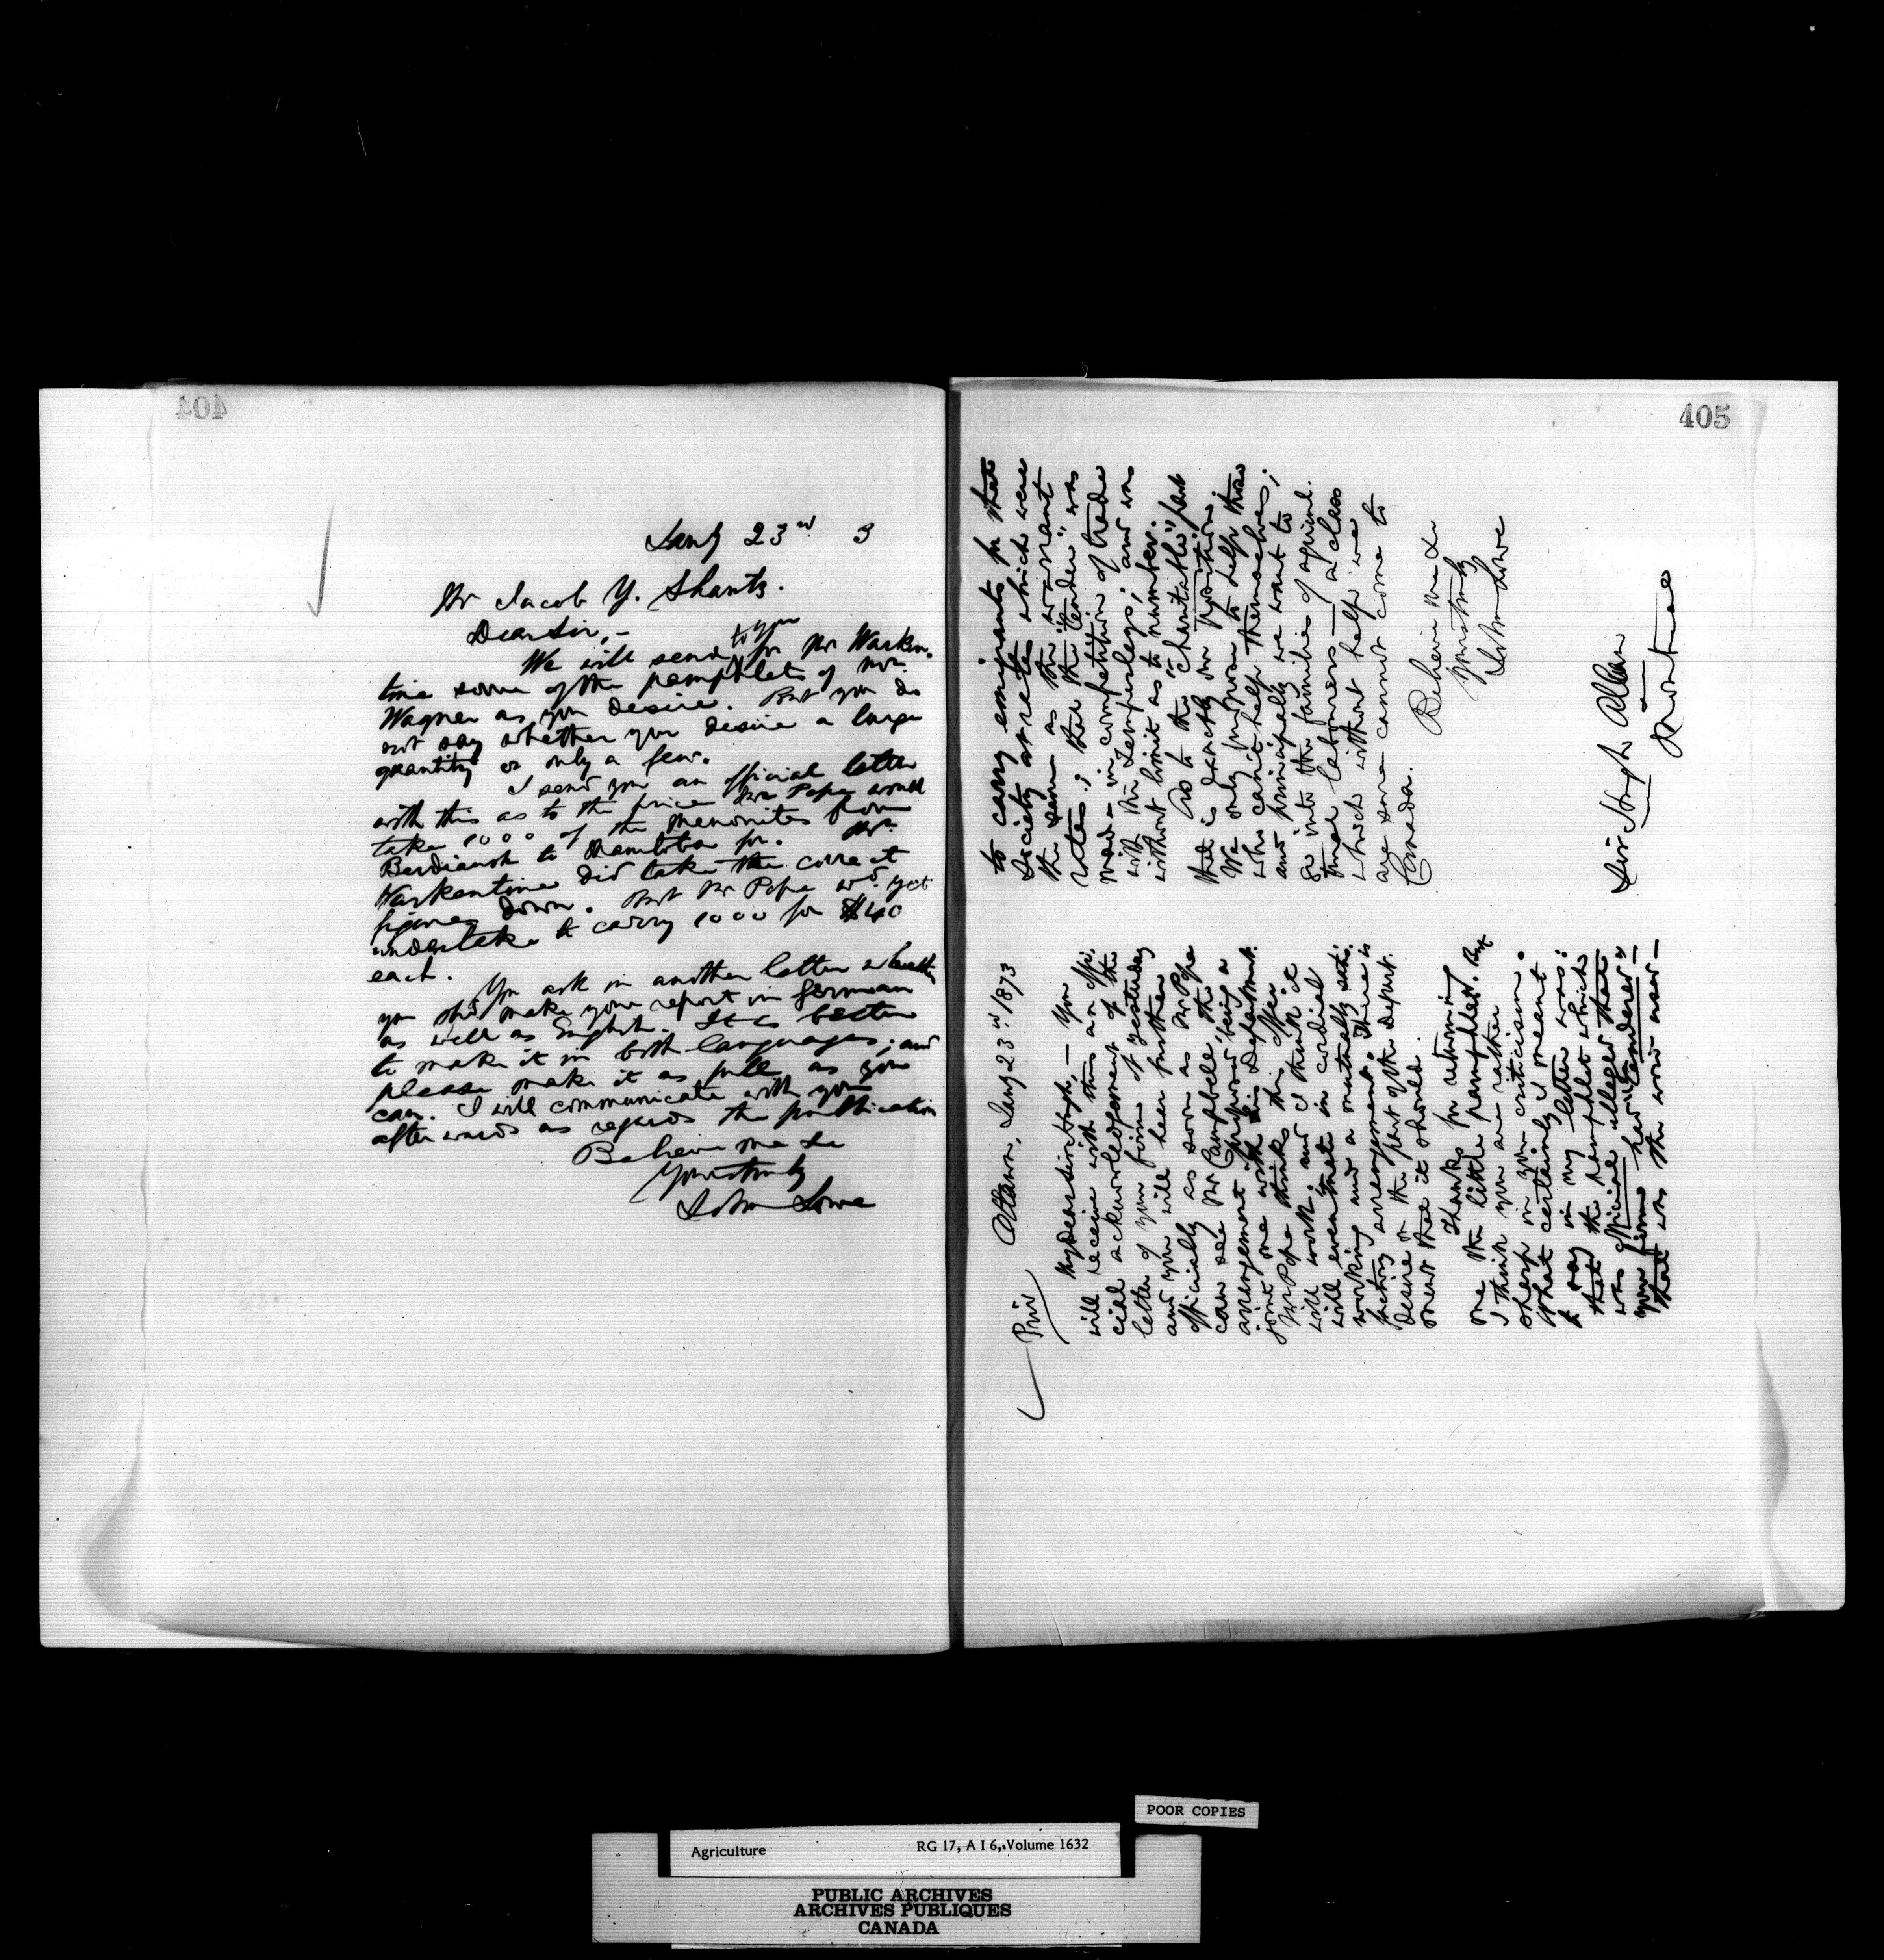 404
Jany 23rd 3
Mr Jacob Y. Shantz.
Dear Sir, –
We will send to you for Mr Warken-
tine some of the pamphlets of Mr.
Wagner as you desire. But you do
not say whether you desire a large
quantity or only a few.
I send you an official letter
with this as to the price Mr Pope would
take 1000 of the Menonites from
Berdiansk to Manitoba for. Mr.
Warkentine did take the correct
figures down. But Mr Pope wd. yet
undertake to carry 1000 for $40
each.
You ask in another letter whether
you shd make your report in German
as well as English. It is better
to make it in both languages; and
please make it as full as you
can. I will communicate with you
afterwards as regards the publication
Believe me &c
Yours truly
John Lowe
405
Priv
Ottawa, Jany 23rd 1873
My dear Sir Hugh, – You
will receive with this an offi-
cial acknowledgement of the
letter of your firm of yesterday
and you will hear further
officially as soon as Mr Pope
can see Mr Campbell, the
arrangement proposed being a
joint one with his Department.
Mr Pope thinks this offer
will work, and I think it
will eventuate in cordial
working and a mutually satis-
factory arrangement. There is
desire on the part of the Depart-
ment that it should.
Thanks for returning
me the little pamphlet. But
I think you are rather
sharp in your criticism.
What certainly I meant
to say in my letter was:
that the pamphlet which
was official alleged that
your firm had "tendered" –
that was the word used –
to carry emigrants for that
Society at rates which were
the same as the warrant
rates; that the "tender" was
made in competition of trade
with the Temperleys; and was
without limit as to number.
As to the "charitable" part
that is exactly our position.
We only propose to help those
who can't help themselves;
and principally we want to
go into the families of agricul-
tural labourers – a class
which without help we
are sure cannot come to
Canada.
Believe me &c
Yours truly
John Lowe
Sir Hugh Allan
Montreal
POOR COPIES
Agriculture RG 17, A I 6, Volume 1632
PUBLIC ARCHIVES
ARCHIVES PUBLIQUES
CANADA